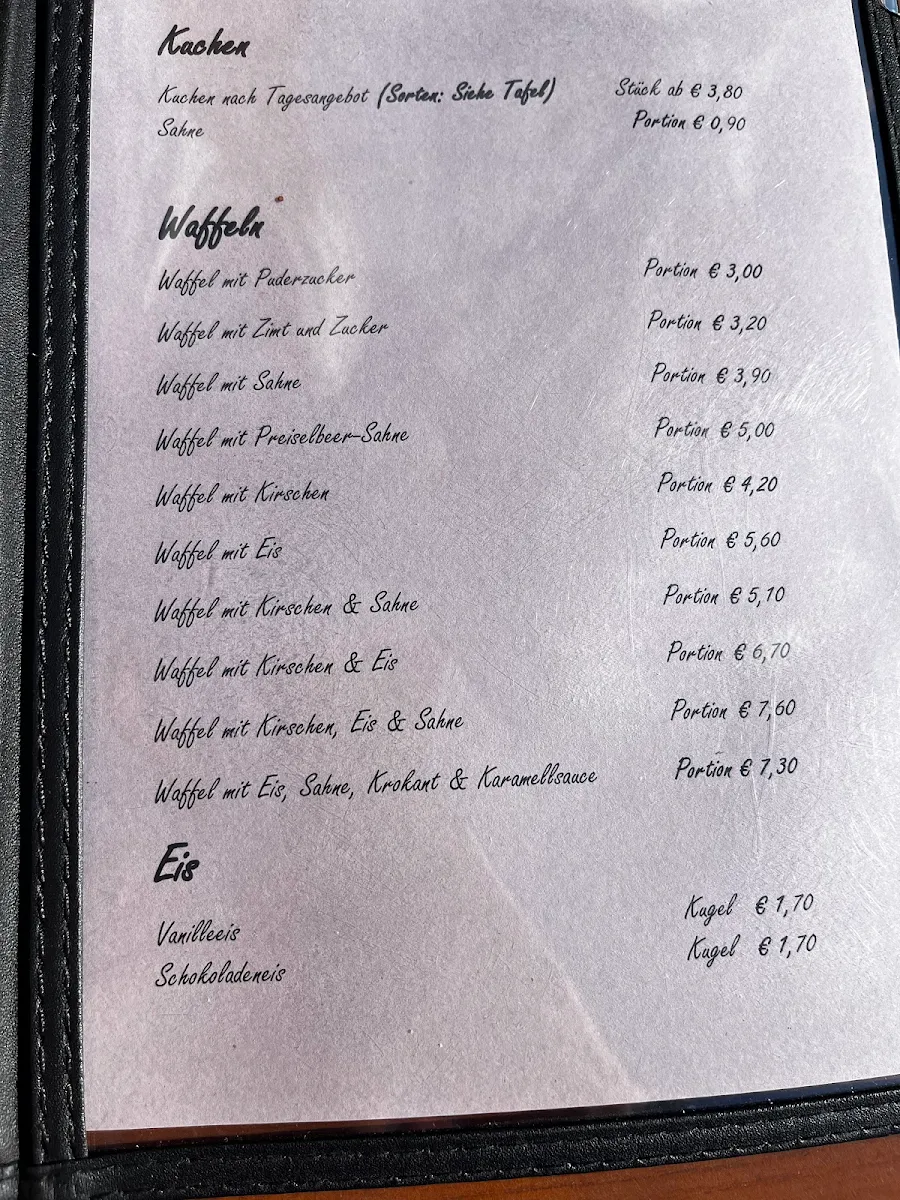 Kuchen
Kuchen nach Tagesangebot (Sorten: Siehe Tafel) Stück ab € 3,80
Sahne Portion € 0,90
Waffeln
Waffel mit Puderzucker Portion € 3,00
Waffel mit Zimt und Zucker Portion € 3,20
Waffel mit Sahne Portion € 3,90
Waffel mit Preiselbeer-Sahne Portion € 5,00
Waffel mit Kirschen Portion € 4,20
Waffel mit Eis Portion € 5,60
Waffel mit Kirschen & Sahne Portion € 5,10
Waffel mit Kirschen & Eis Portion € 6,70
Waffel mit Kirschen, Eis & Sahne Portion € 7,60
Waffel mit Eis, Sahne, Krokant & Karamellsauce Portion € 7,30
Eis
Vanilleeis Kugel € 1,70
Schokoladeneis Kugel € 1,70